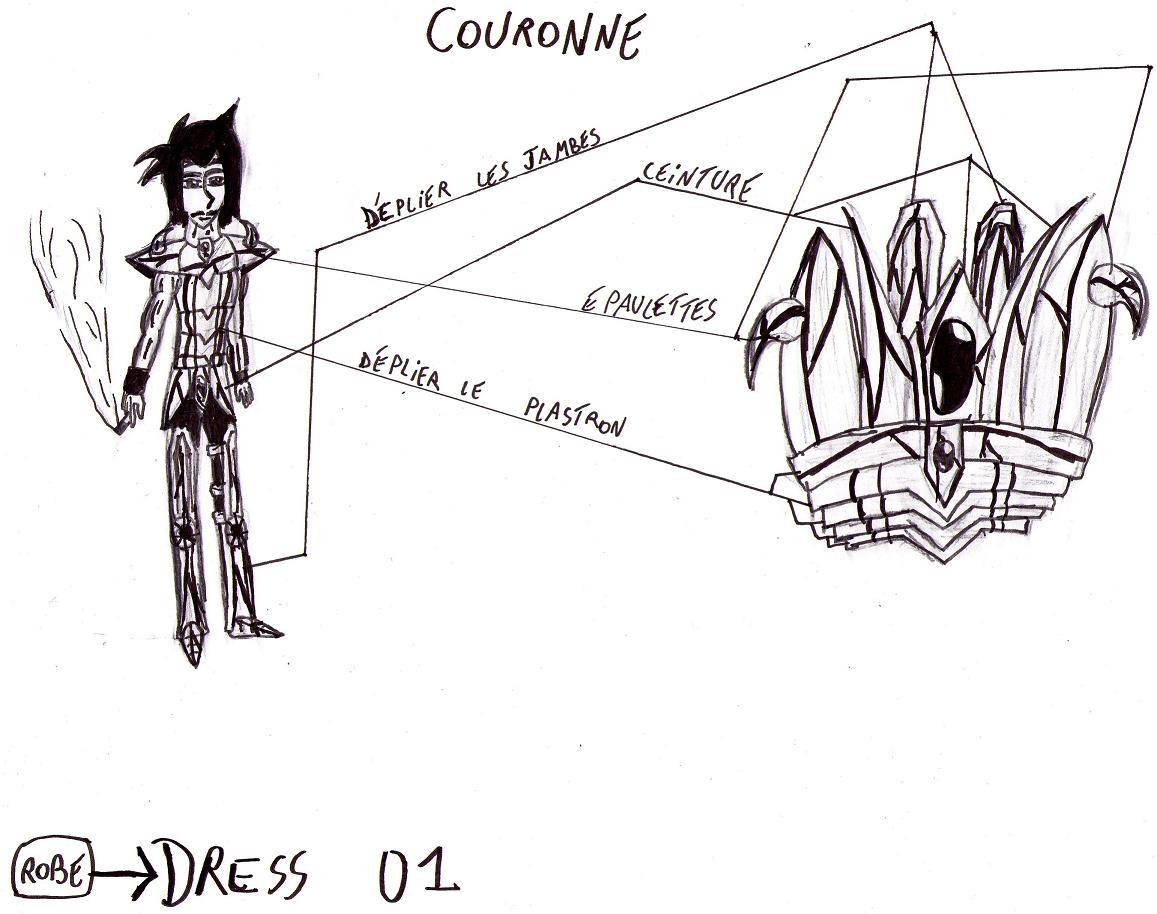 COURONNE
DÉPLIER LES JAMBES
CEINTURE
ÉPAULETTES
DÉPLIER LE PLASTRON
ROBE → DRESS 01